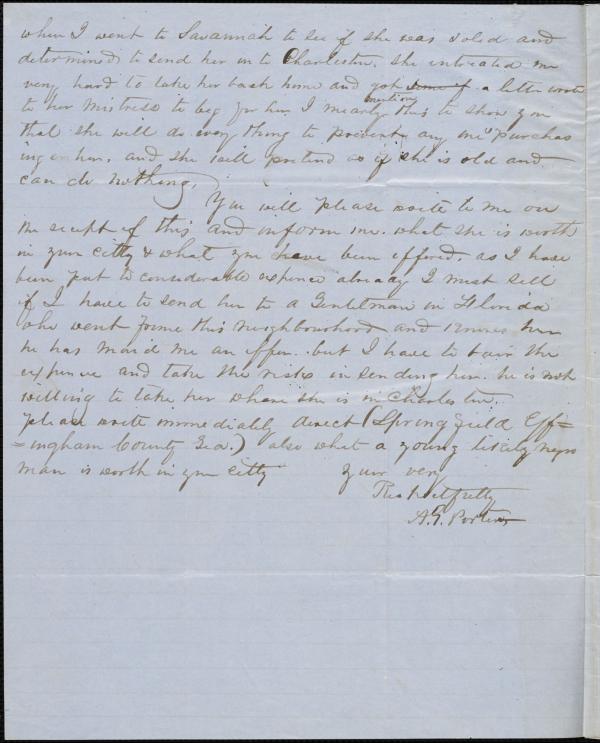 when I went to Savannah to see if she was sold and
determined to send her on to Charleston. she intreated me
very hard to take her back home and got some of a letter wrote
to her Mistress to beg for her. I mearly mention this to show you
that she will do every thing to prevent any one purchas
ing her. and she will pretend as if she is old and
can do nothing.
You will please write to me on
the recept of this and inform me. what she is worth
in your citty & what you have been offered. as I have
been put to considerable expence already I must sell
if I have to send her to a Gentleman in Florida
who went from this neighbourhood and knows her
he has maid me an offer. but I have to bair the
expence and take the risks in sending her. he is not
willing to take her where she is in Charleston.
please write immediately direct (Springfield Eff=
=ingham County Geo.) also what a young likely negro
man is worth in your citty your very
Respectfully
A. G. Porter